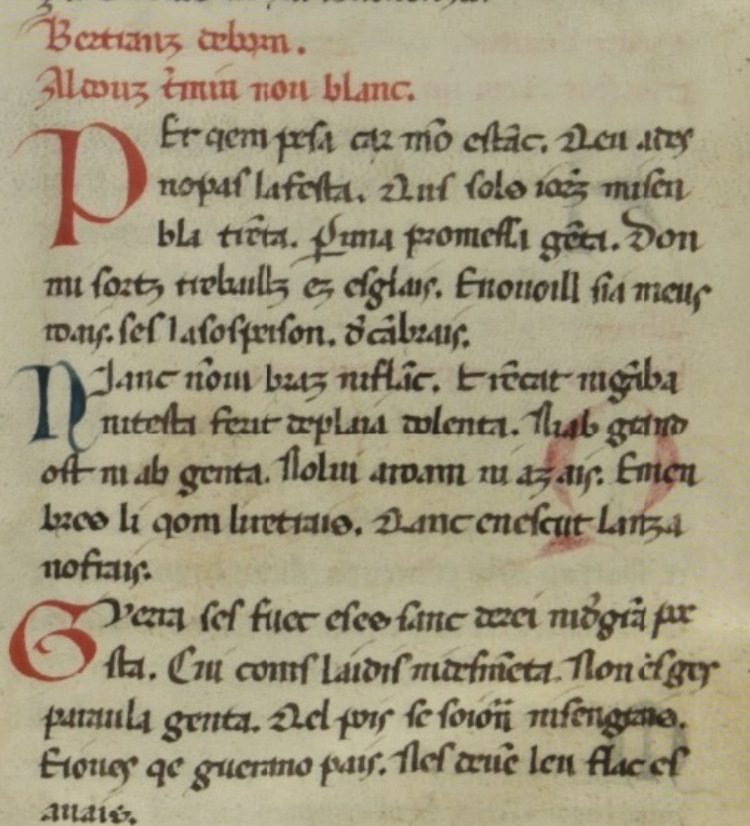 Bertranz deborn.
Aldouz termini nou blanc.
PEr qem pesa car mō estāc. Aeu ades
nopas lafesta. Aus solo iorz misen
bla trēta. Puna promessa gēta. Don
mi sortz trebuillz ez esglais. Enouoill sia meus
doais. ses lasospeison. d'cābrais.
NJanc nōm braz niflāc. Erēcat nigāba
nitesta ferit deplaia dolenta. Niab grand
ost ni ab genta. Nolui aroam ni azais. Emen
breo li qom liuetraio. Aanc enescut lanza
nofrais.
GVerra ses fuec eseo sanc derei nidgrā pœ
sta. Cui coms laidis nidesmēta. Non ēs ges
paraula genta. Ael pois se soiorn nisengraio.
Eioues qe guerano pais. Nes deuē leu flac es
auais.